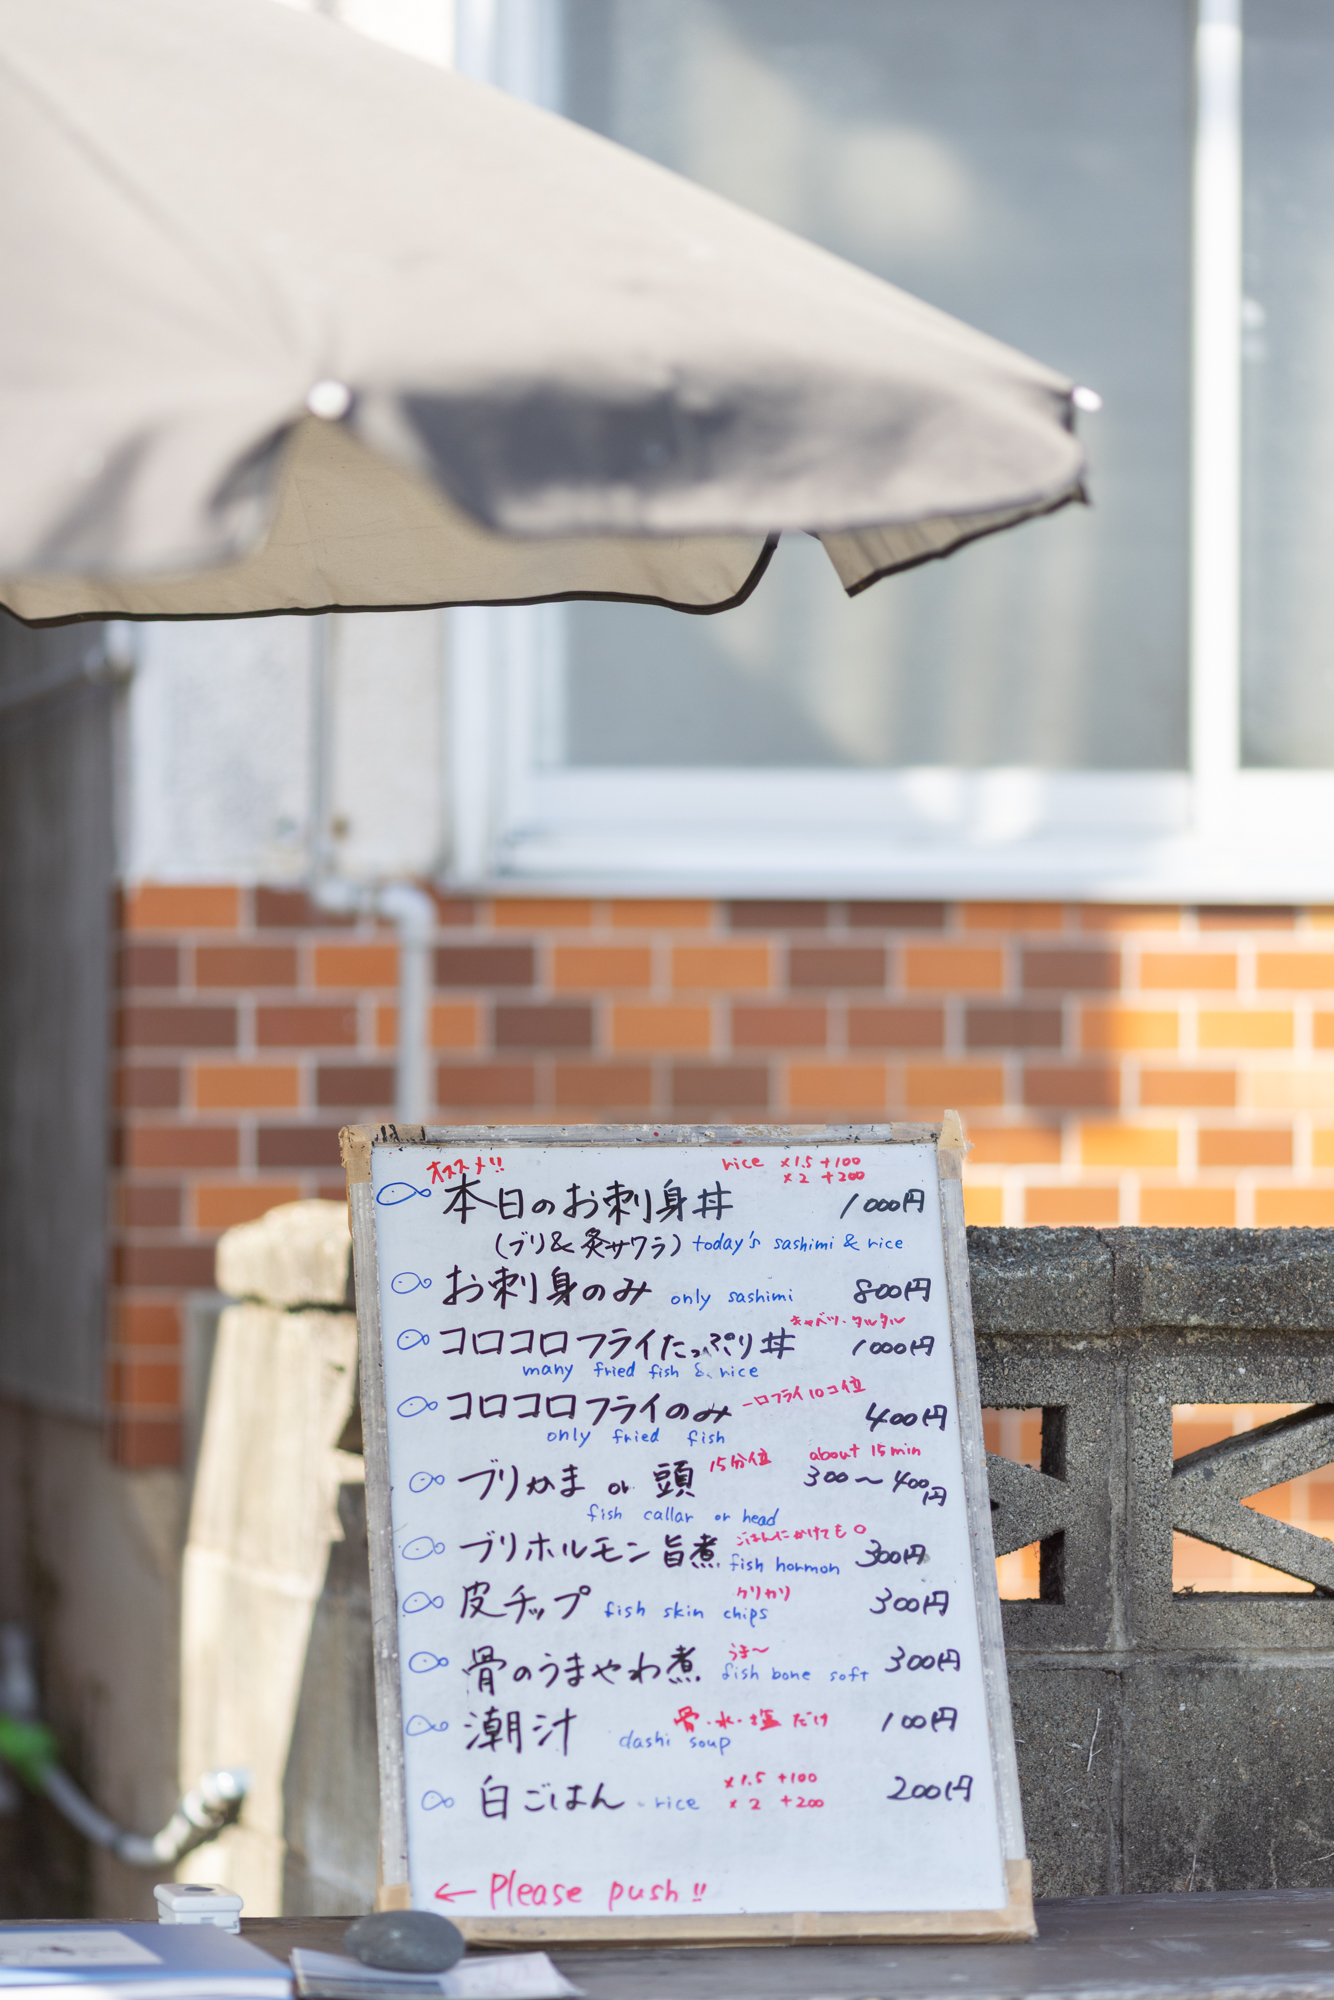 オススメ!! rice ×1.5 +100
×2 +200
本日のお刺身丼 1000円
(ブリ&炙サワラ) today's sashimi & rice
お刺身のみ only sashimi 800円
キャベツ・タルタル
コロコロフライたっぷり丼 1000円
many fried fish & rice
コロコロフライのみ 一口フライ10コ位 400円
only fried fish
ブリかま or 頭 15分位 about 15 min
300〜400円
fish callar or head
ブリホルモン旨煮 ごはんにかけても○ 300円
fish hormon
皮チップ fish skin chips カリカリ 300円
骨のうまやわ煮 うま〜 300円
fish bone soft
潮汁 骨・水・塩だけ 100円
dashi soup
白ごはん rice ×1.5 +100 200円
×2 +200
← Please push!!